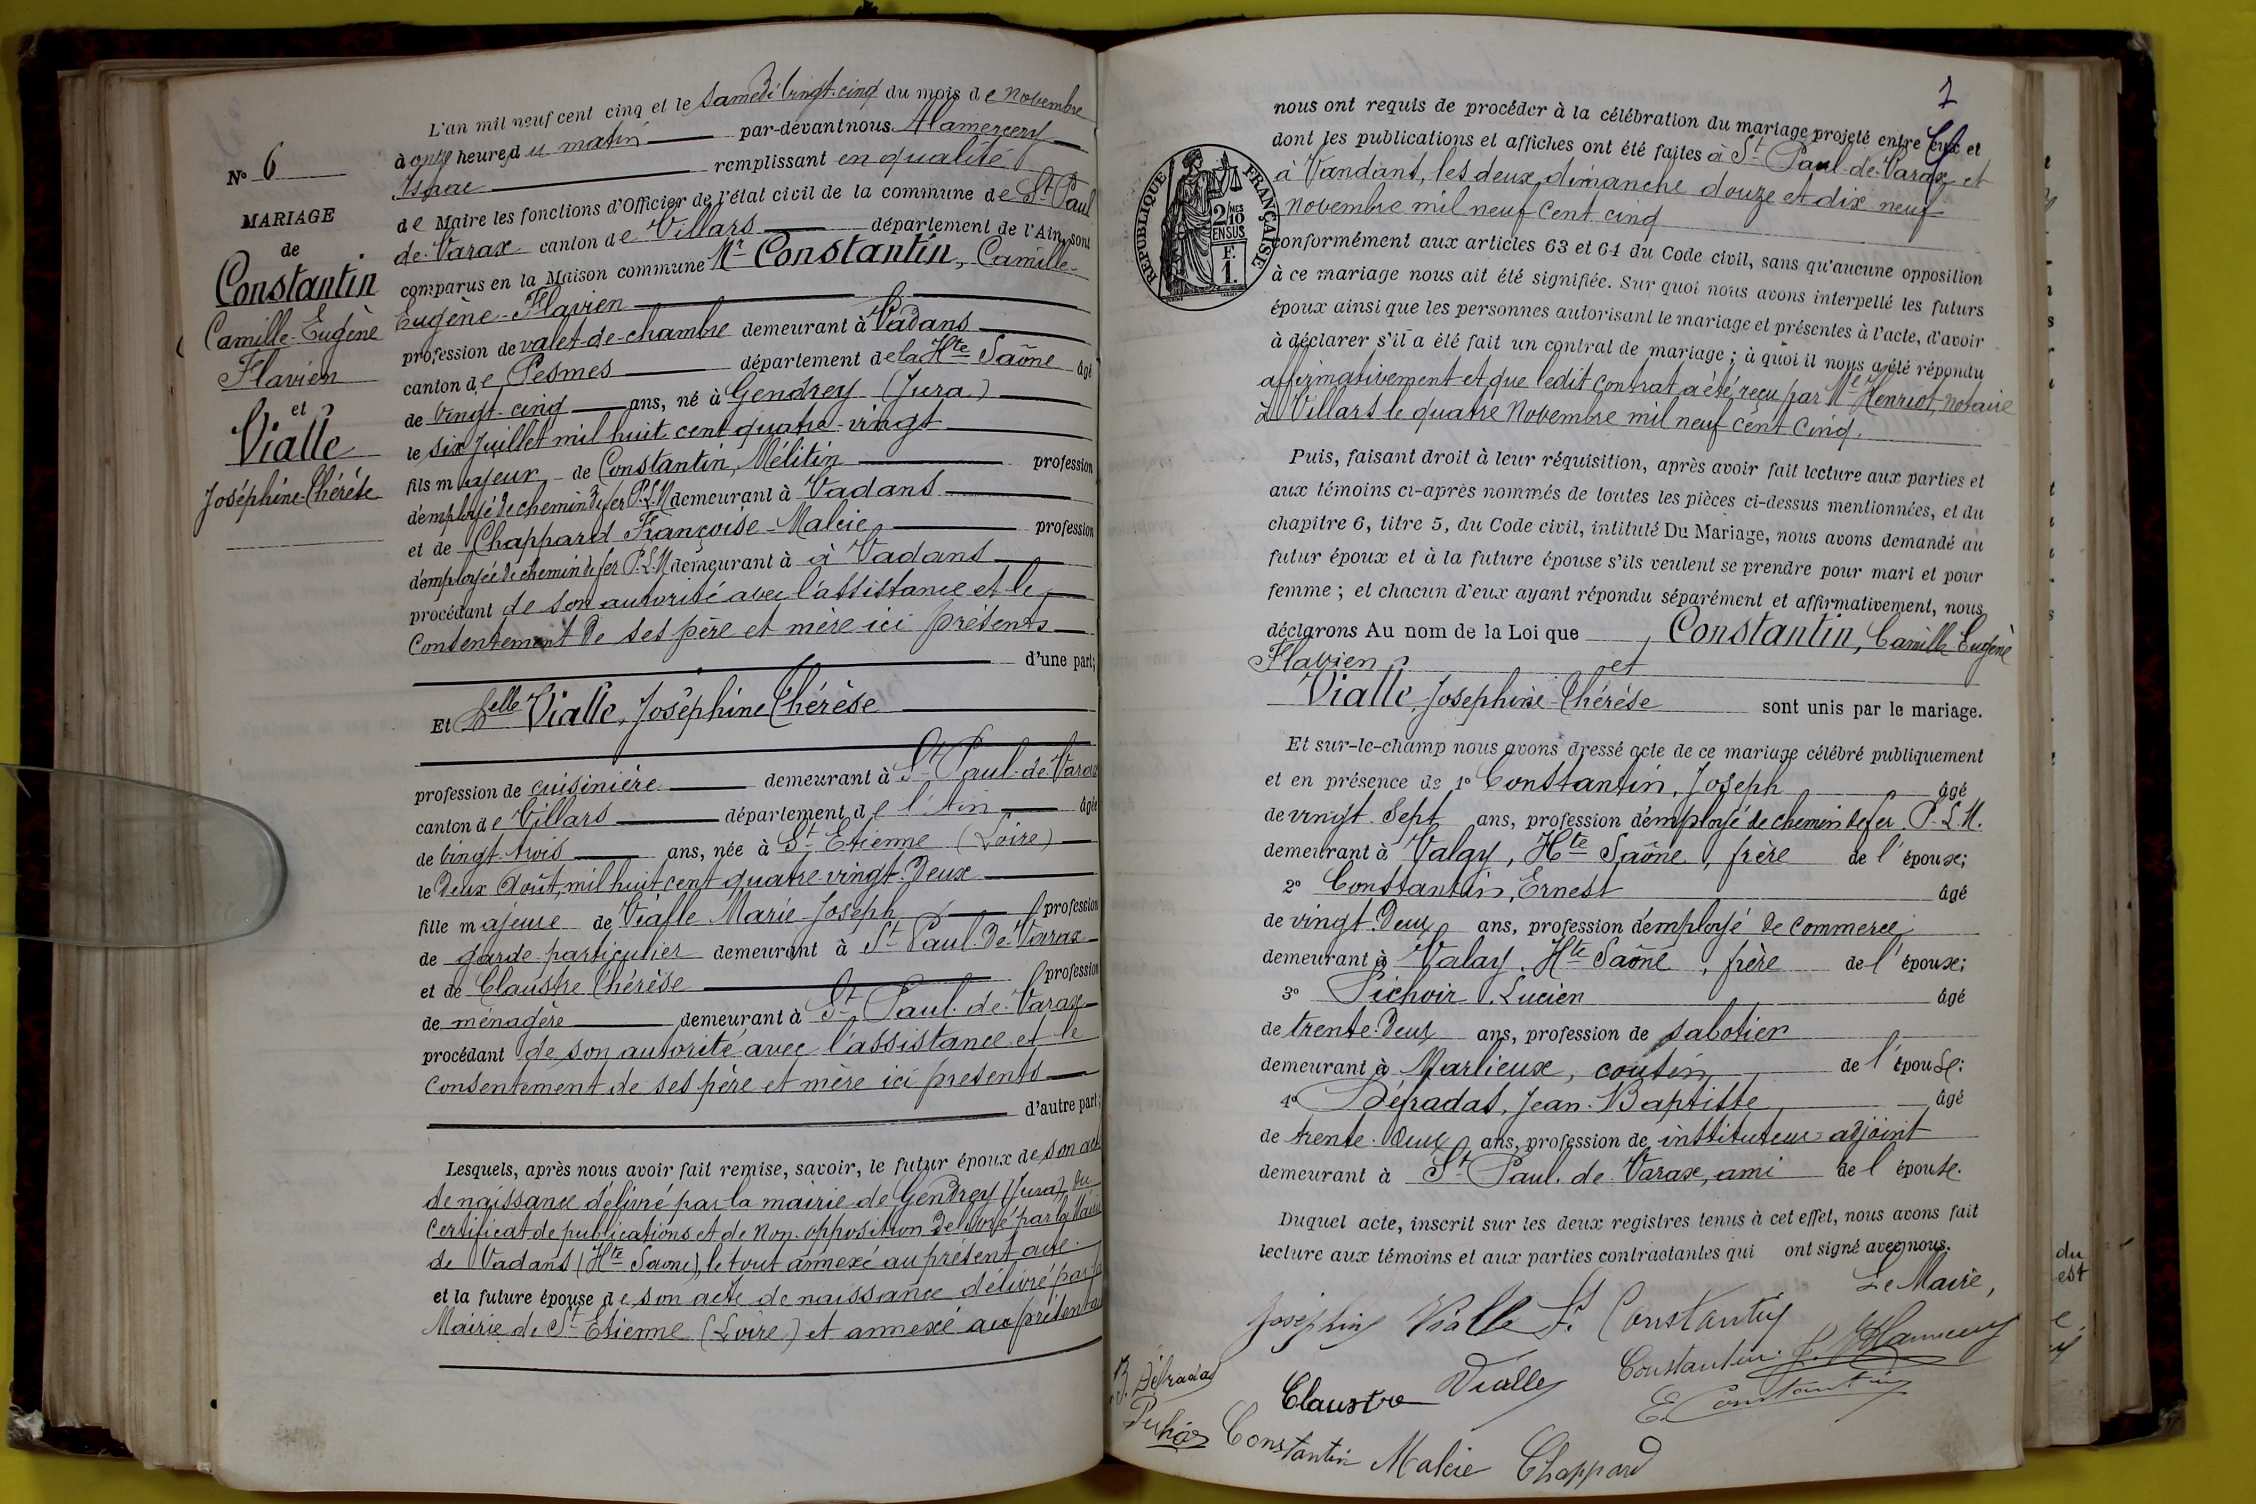 N° 6
MARIAGE
de
Constantin
Camille-Eugène
Flavien
et
Vialle
Joséphine-Thérèse
L'an mil neuf cent cinq et le samedi vingt-cinq du mois de Novembre
à onze heures du matin par-devant nous Alamercery
Isaac remplissant en qualité
de Maire les fonctions d'Officier de l'état civil de la commune de St Paul
de Varax canton de Villars département de l'Ain, sont
comparus en la Maison commune Mr Constantin, Camille-
Eugène-Flavien
profession de valet-de-chambre demeurant à Vadans
canton de Pesmes département de la Hte Saône âgé
de vingt-cinq ans, né à Gendrey (Jura)
le six Juillet mil huit cent quatre-vingt
fils majeur de Constantin, Mélitin profession
d'employé de chemin de fer P.L.M demeurant à Vadans
et de Chappard Françoise-Malcie profession
d'employée de chemin de fer P.L.M demeurant à à Vadans
procédant de son autorité avec l'assistance et le
consentement de ses père et mère ici présents
d'une part;
Et Delle Vialle, Joséphine Thérèse
profession de cuisinière demeurant à St Paul-de-Varax
canton de Villars département de l'Ain âgée
de vingt-trois ans, née à St Etienne (Loire)
le deux Août, mil huit cent quatre-vingt-deux
fille majeure de Vialle Marie-Joseph profession
de garde-particulier demeurant à St Paul-de-Varax
et de Claustre Thérèse profession
de ménagère demeurant à St Paul-de-Varax
procédant de son autorité avec l'assistance et le
consentement de ses père et mère ici présents
d'autre part;
Lesquels, après nous avoir fait remise, savoir, le futur époux de son acte
de naissance délivré par la mairie de Gendrey (Jura), du
certificat de publications et de non-opposition délivré par la Mairie
de Vadans (Hte Saône), le tout annexé au présent acte.
et la future épouse de son acte de naissance délivré par la
Mairie de St Etienne (Loire) et annexé au présent
nous ont requis de procéder à la célébration du mariage projeté entre eux et
dont les publications et affiches ont été faites à St Paul-de-Varax et
à Vandans, les deux dimanche douze et dix neuf
Novembre mil neuf cent cinq
conformément aux articles 63 et 64 du Code civil, sans qu'aucune opposition
à ce mariage nous ait été signifiée. Sur quoi nous avons interpellé les futurs
époux ainsi que les personnes autorisant le mariage et présentes à l'acte, d'avoir
à déclarer s'il a été fait un contrat de mariage; à quoi il nous a été répondu
affirmativement et que ledit contrat a été reçu par Me Henriot, notaire
à Villars le quatre Novembre mil neuf cent cinq.
RÉPUBLIQUE FRANÇAISE
2/10 MES
EN SUS
F.
1.
Puis, faisant droit à leur réquisition, après avoir fait lecture aux parties et
aux témoins ci-après nommés de toutes les pièces ci-dessus mentionnées, et du
chapitre 6, titre 5, du Code civil, intitulé Du Mariage, nous avons demandé au
futur époux et à la future épouse s'ils veulent se prendre pour mari et pour
femme; et chacun d'eux ayant répondu séparément et affirmativement, nous
déclarons Au nom de la Loi que Constantin, Camille Eugène
Flavien et
Vialle, Joséphine-Thérèse sont unis par le mariage.
Et sur-le-champ nous avons dressé acte de ce mariage célébré publiquement
et en présence de 1° Constantin, Joseph âgé
de vingt-sept ans, profession d'employé de chemin de fer P.L.M.
demeurant à Valay, Hte Saône, frère de l'époux;
2° Constantin, Ernest âgé
de vingt-deux ans, profession d'employé de commerce
demeurant à Valay, Hte Saône, frère de l'époux;
3° Pichoir, Lucien âgé
de trente-deux ans, profession de sabotier
demeurant à Marlieux, cousin de l'épouse;
4° Défradas, Jean-Baptiste âgé
de trente-deux ans, profession de instituteur-adjoint
demeurant à St Paul-de-Varax, ami de l'épouse.
Duquel acte, inscrit sur les deux registres tenus à cet effet, nous avons fait
lecture aux témoins et aux parties contractantes qui ont signé avec nous.
Le Maire,
Joséphine Vialle F. Constantin
Défradas Claustre Vialle Constantin J. Alamercery
E. Constantin
Pichoir Constantin Malcie Chappard
du
est